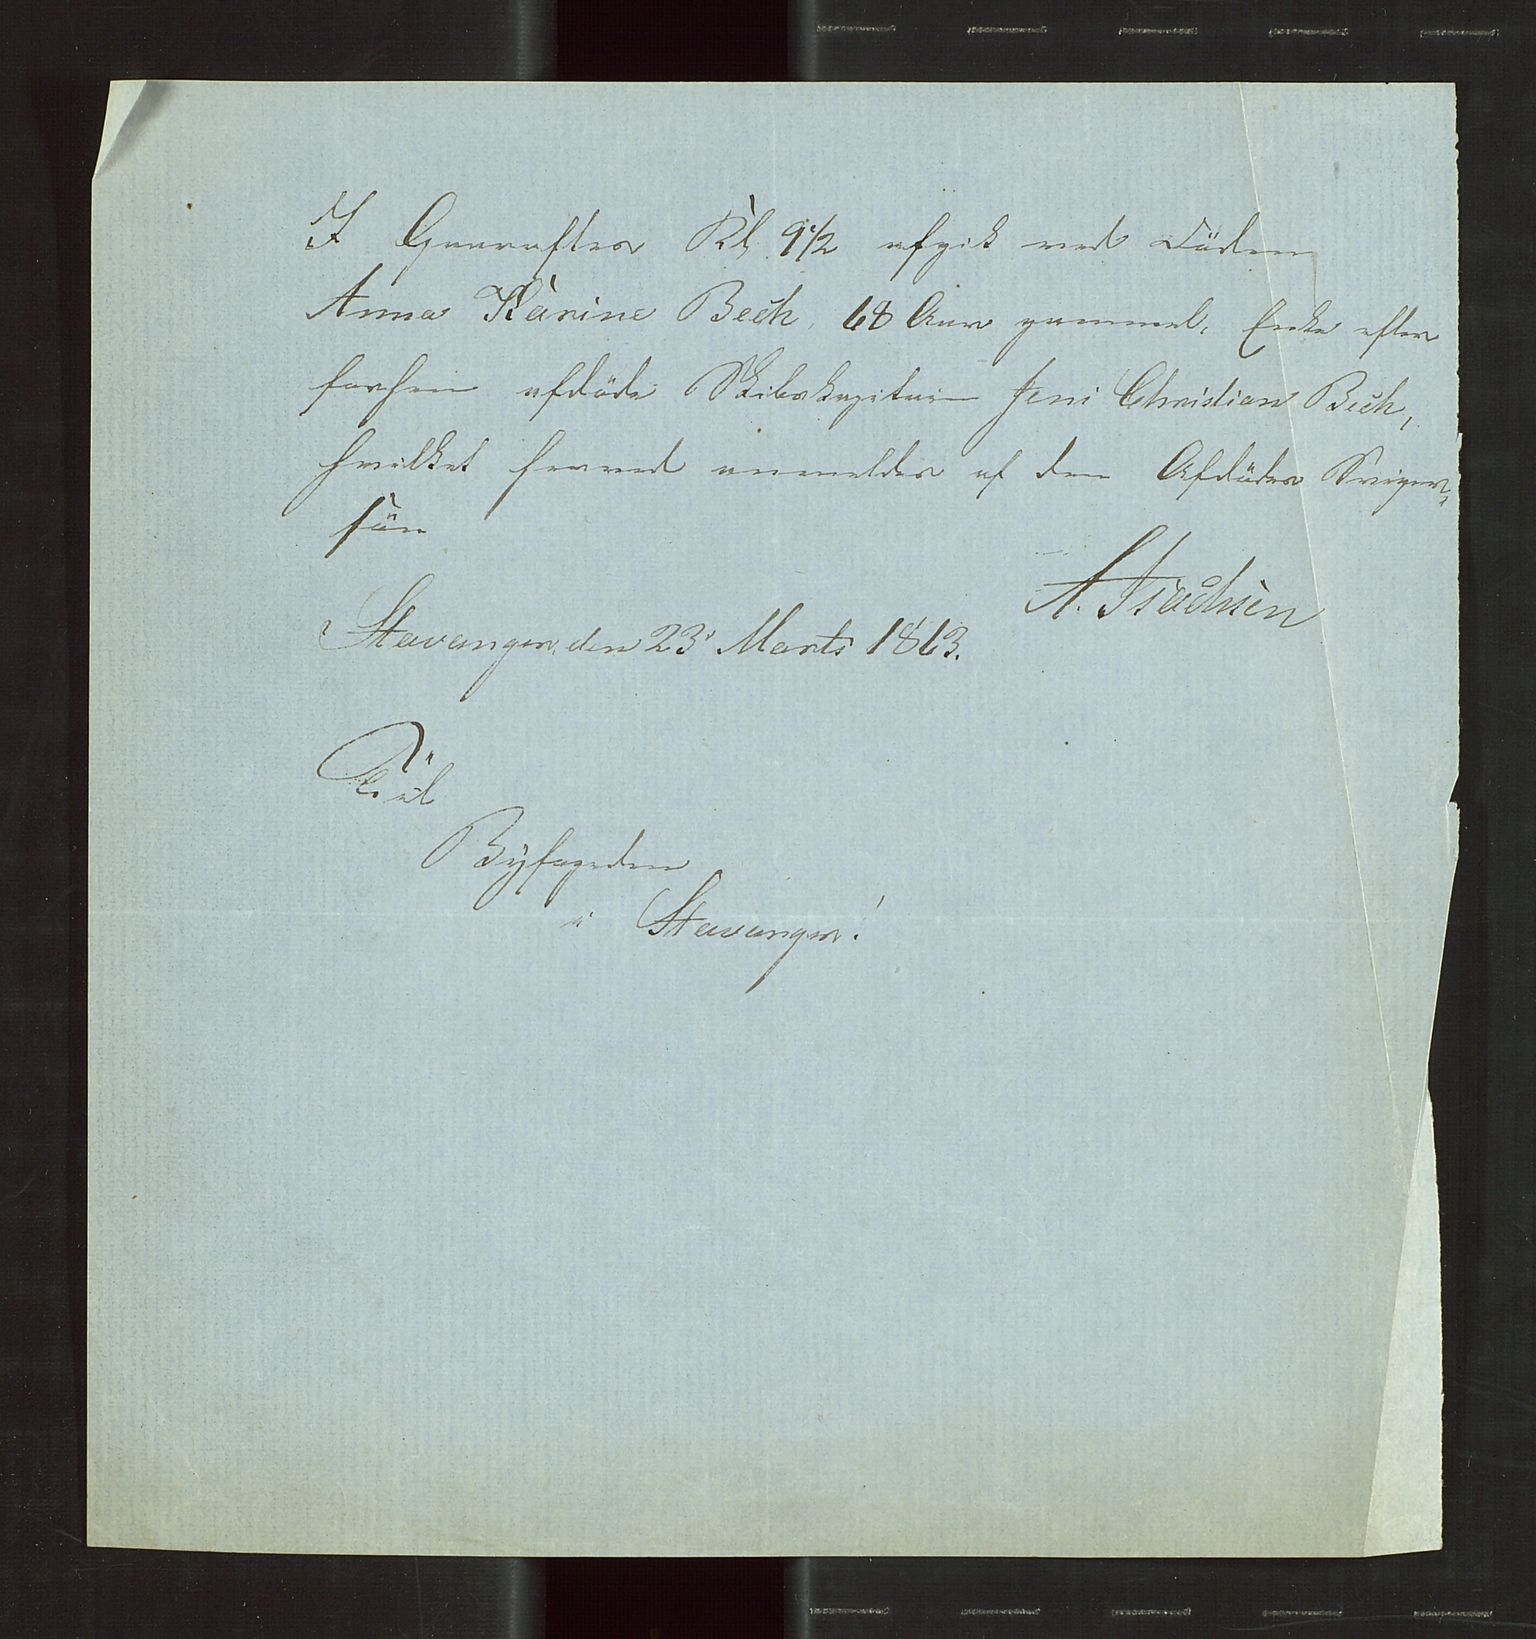 I Gaaraftes Kl. 9 1/2 afgik ved Döden
Anna Karine Bech, 68 Aar gammel, Enke efter
forhen afdöde Skibskapitain Jens Christian Bech,
hvilket herved anmeldes af den Afdödes Sviger-
sön
A. Isachsen
Stavanger, den 23 Marts 1863.
Til
Byfogden
i Stavanger!